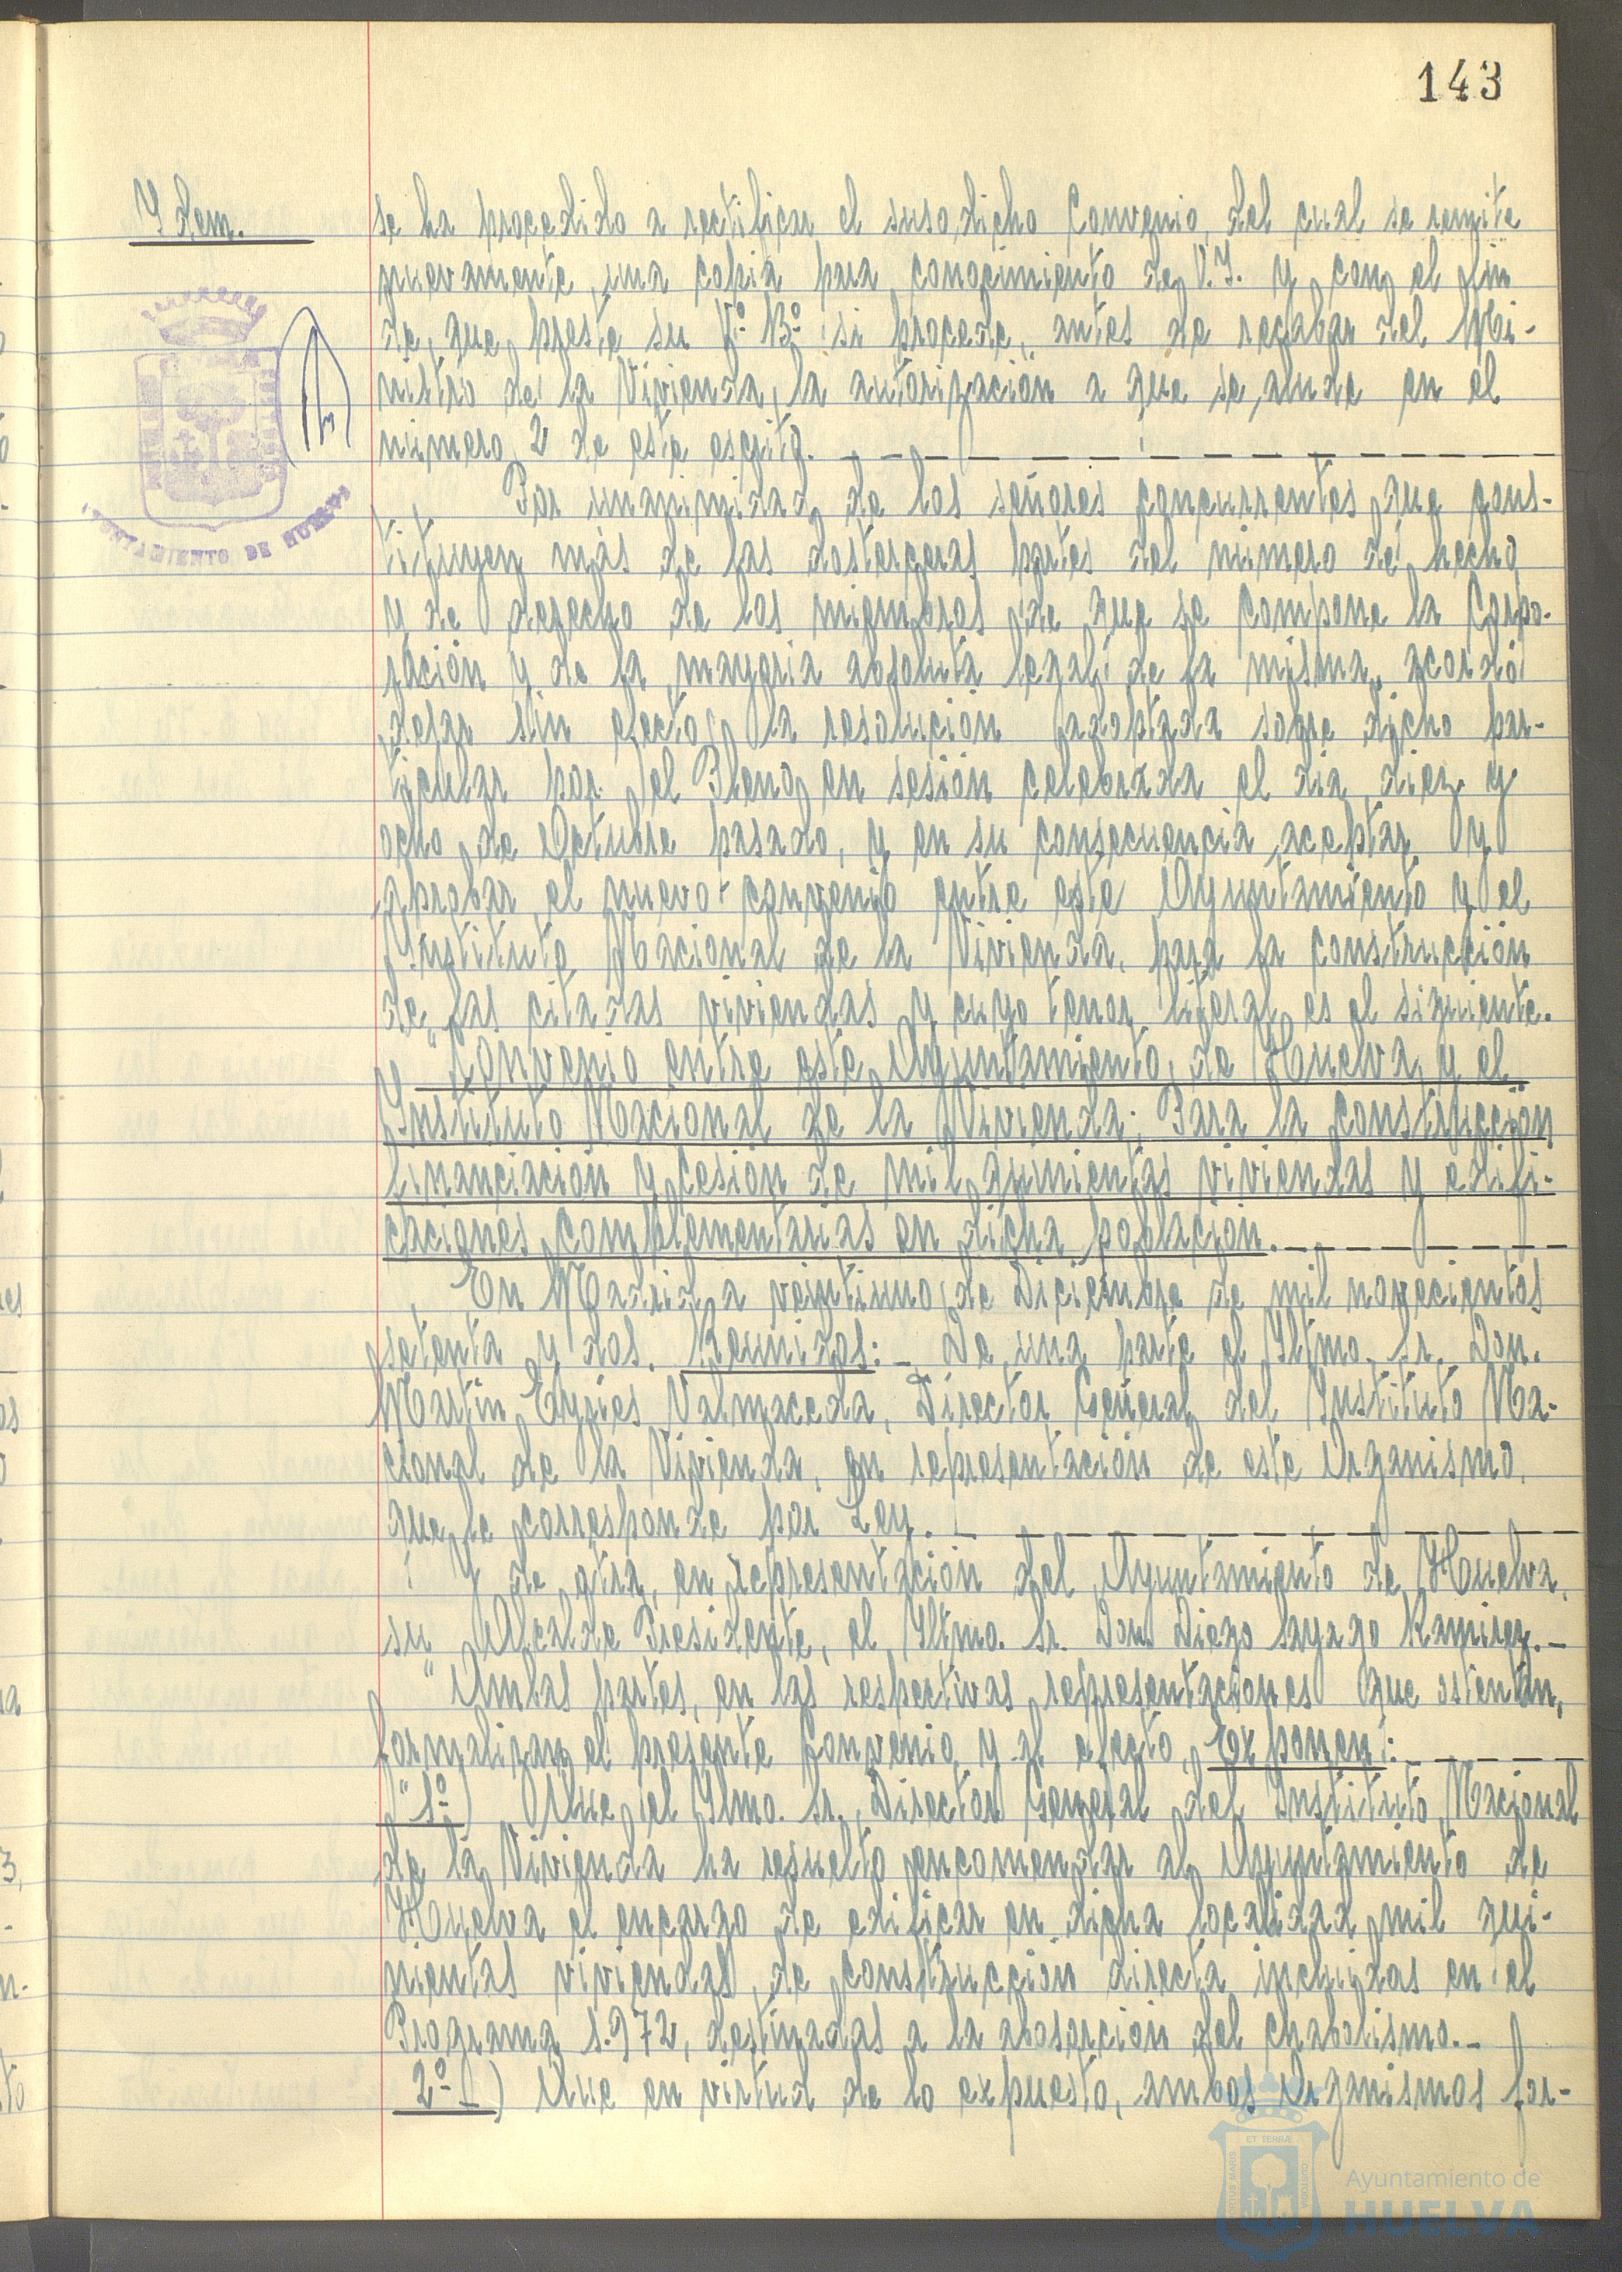 143
Ydem.
se ha procedido a rectificar el susodicho Convenio, del cual se remite
nuevamente una copia para conocimiento de V.I. y con el fin
de que preste su Vº Bº si procede, antes de recabar del Mi-
nistro de la Vivienda, la autorización a que se alude en el
número 2 de este escrito.
Por unanimidad de los señores concurrentes que cons-
tituyen más de las dosterceras partes del número de hecho
y de derecho de los miembros de que se compone la Corpo-
ración y de la mayoría absoluta legal de la misma, acordó
dejar sin efecto la resolución adoptada sobre dicho par-
ticular por el Pleno en sesión celebrada el día diez y
ocho de Octubre pasado, y en su consecuencia aceptar y
aprobar el nuevo convenio entre este Ayuntamiento y el
Instituto Nacional de la Vivienda, para la construcción
de las citadas viviendas y cuyo tenor literal es el siguiente.
"Convenio entre este Ayuntamiento, de Huelva y el
Instituto Nacional de la Vivienda; Para la construcción
financiación y cesión de mil quinientas viviendas y edifi-
caciones complementarias en dicha población.
En Madrid a veintiuno de Diciembre de mil novecientos
setenta y dos. Reunidos: - De una parte el Iltmo. Sr. Don.
Martín Eyries Valmaceda, Director General del Instituto Na-
cional de la Vivienda, en representación de este Organismo,
que le corresponde por Ley.
Y de otra, en representación del Ayuntamiento de Huelva,
su Alcalde Presidente, el Iltmo. Sr. Don Diego Sayago Ramírez.-
"Ambas partes, en las respectivas representaciones que ostentan,
formalizan el presente Convenio y al efecto, Exponen:
"1º) Que el Ilmo. Sr. Director General del Instituto Nacional
de la Vivienda ha resuelto encomendar al Ayuntamiento de
Huelva el encargo de edificar en dicha localidad mil qui-
nientas viviendas de construcción directa incluidas en el
Programa 1.972, destinadas a la absorción del chabolismo.-
2º-) Que en virtud de lo expuesto, ambos Organismos for-
AYUNTAMIENTO DE HUELVA
Ayuntamiento de
HUELVA